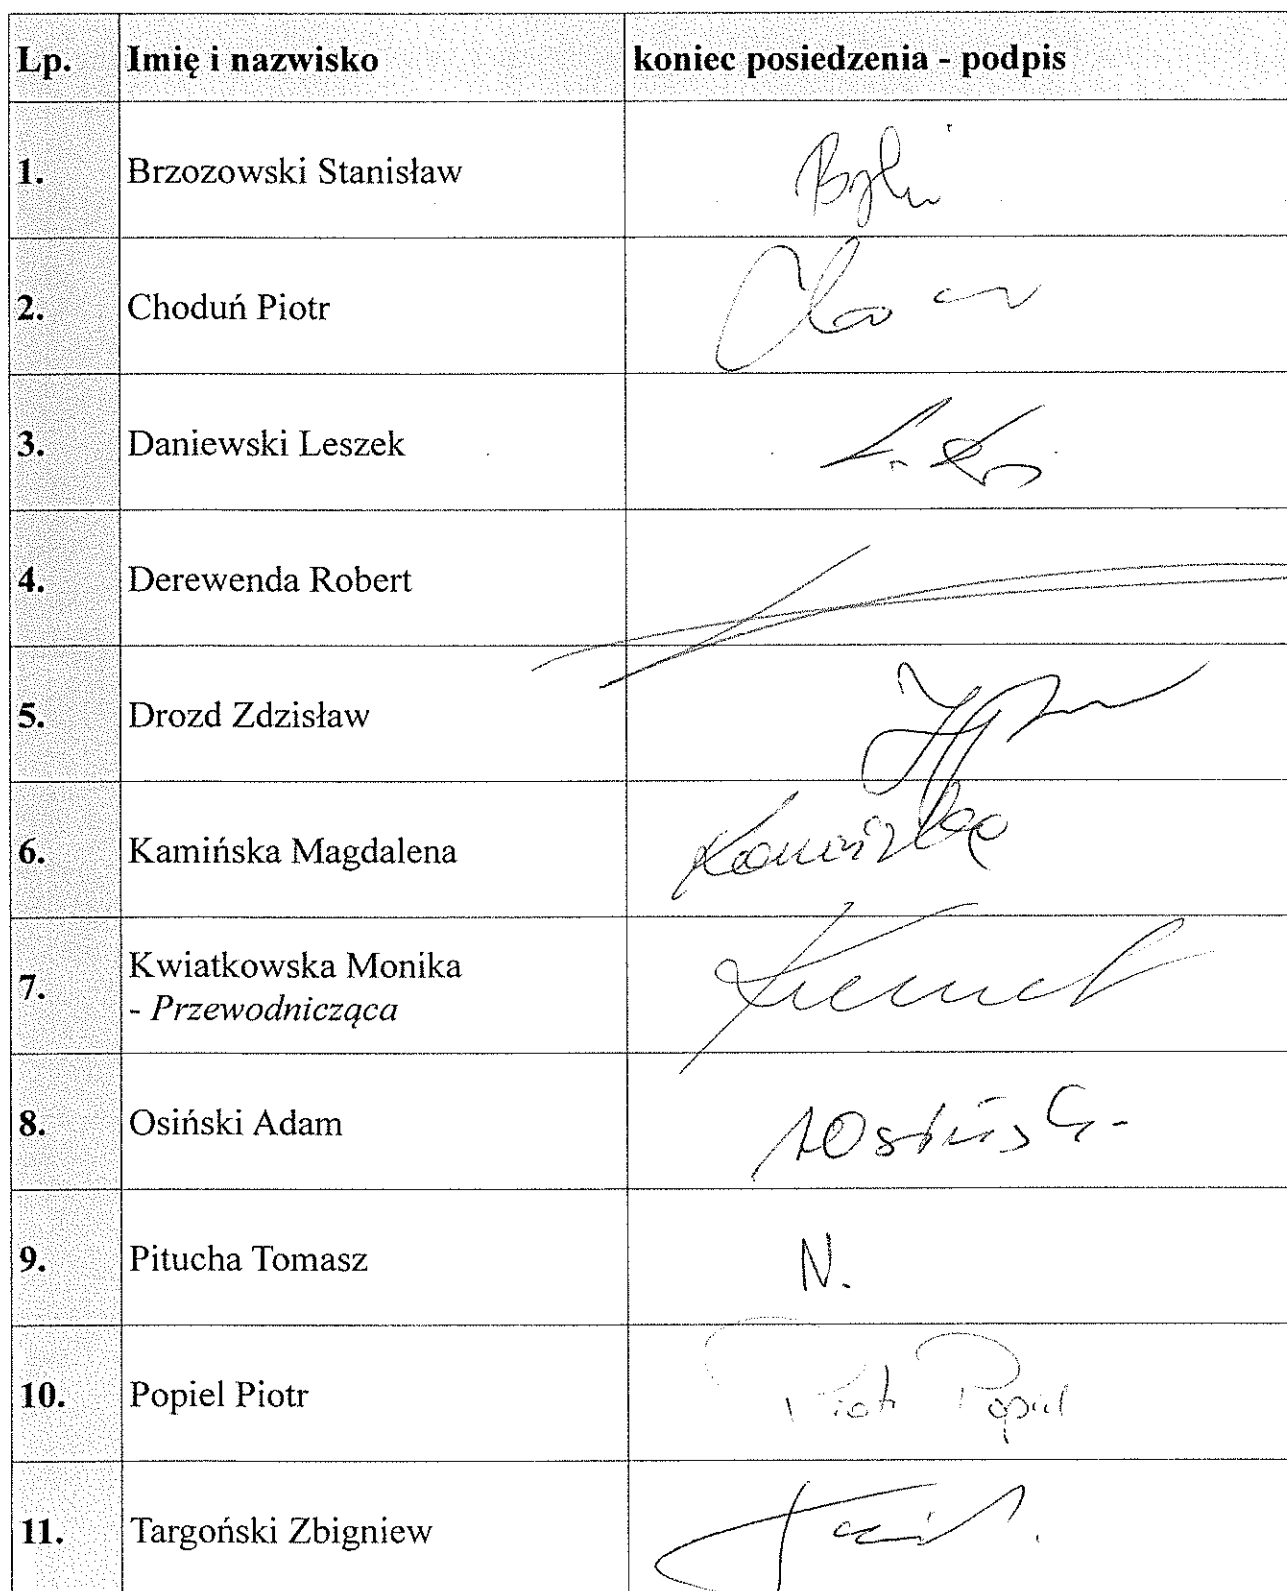 Lp. Imię i nazwisko koniec posiedzenia - podpis
1. Brzozowski Stanisław
2. Choduń Piotr
3. Daniewski Leszek
4. Derewenda Robert
5. Drozd Zdzisław
6. Kamińska Magdalena
7. Kwiatkowska Monika
- Przewodnicząca
8. Osiński Adam
9. Pitucha Tomasz N.
10. Popiel Piotr Piotr Popiel
11. Targoński Zbigniew